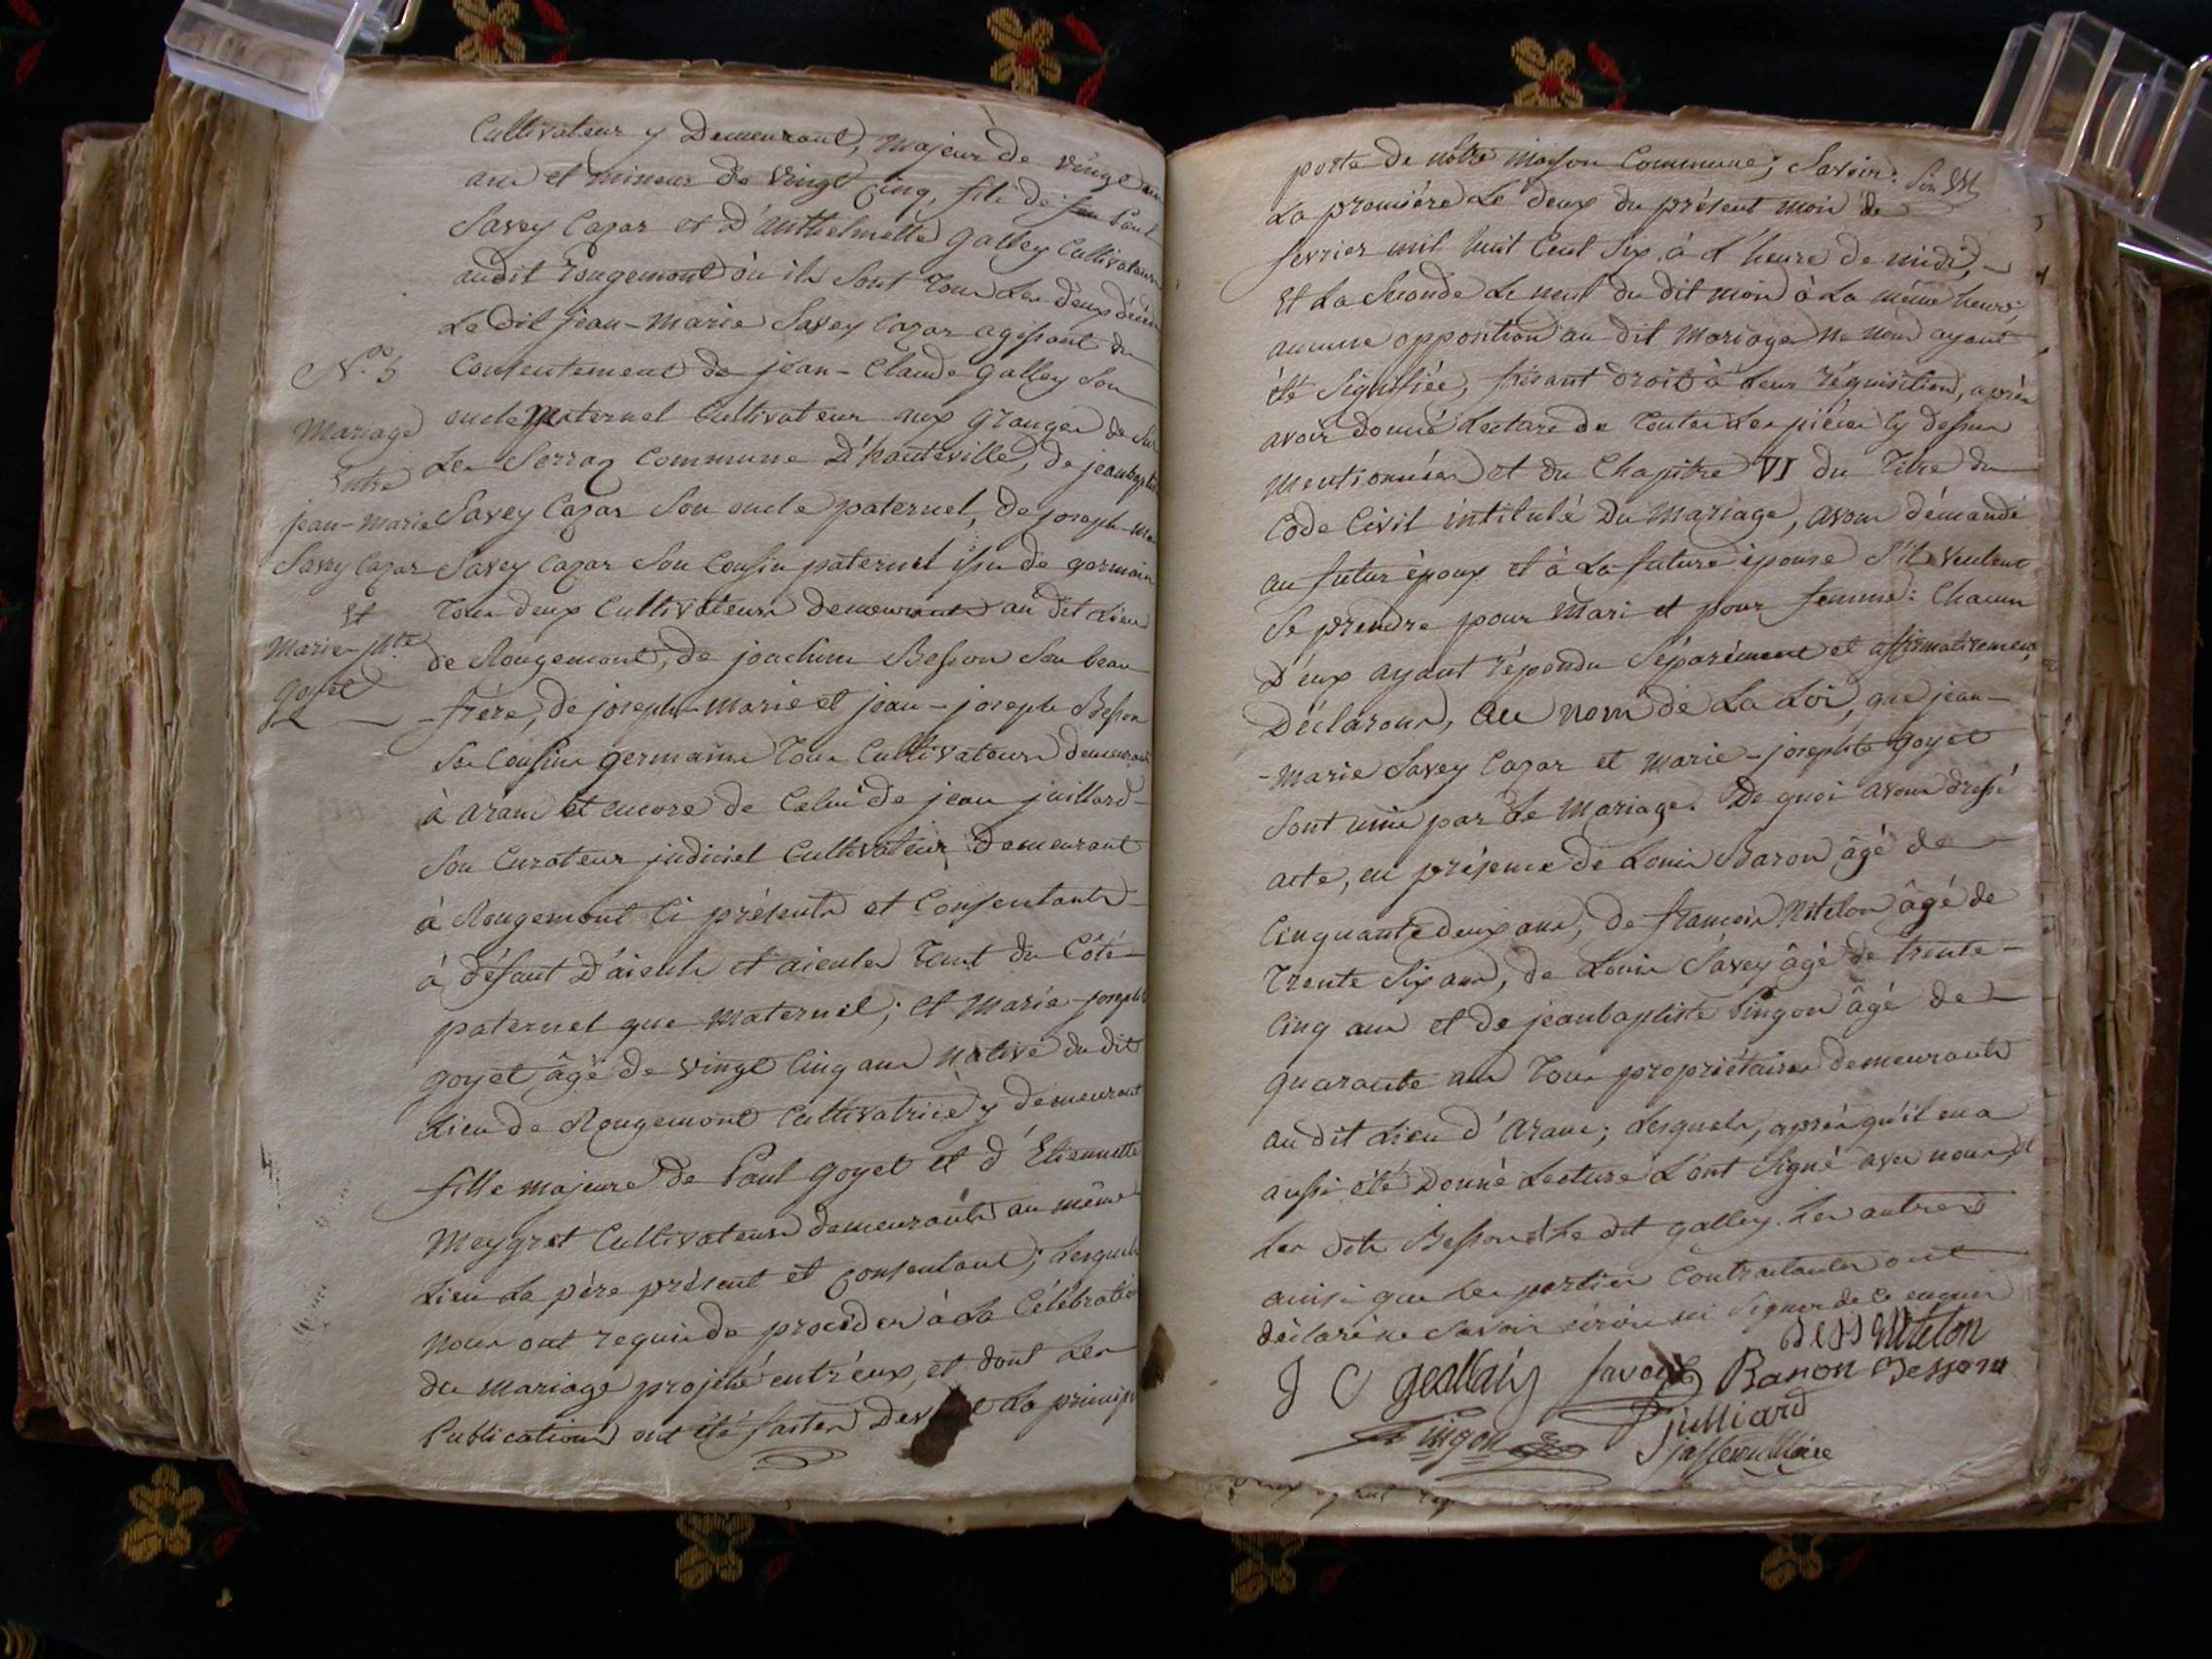 Cultivateur y Demeurant, majeur de vingt un
ans et mineur de vingt cinq, fils de feu Paul
Savey Cazar et D'anthelmette galley Cultivateurs
audit Rougemont où ils sont tous les deux décédés
Le dit jean-Marie Savey Cazar agissant du
N.º 5
Mariage
Entre
jean-Marie
Savey Cazar
Et
Marie-jph.te
goyet
Consentement de jean-Claude galley Son
oncle Maternel Cultivateur aux granges de Sur
Les Serraz Commune D'hauteville, de jeanbaptiste
Savey Cazar Son oncle paternel, de joseph-marie
Savey Cazar Son Cousin paternel issu de germain
tous deux Cultivateurs demeurants au dit Lieu
de Rougemont, de joachim Besson Son beau
-frère, de joseph-Marie et jean-joseph Besson
Ses Cousins germains tous Cultivateurs demeurants
à aranc et encore de Celui de jean juillard
Son Curateur judiciel Cultivateur Demeurant
à Rougemont Ci présents et Consentants
à défaut D'aieuls et aieules tant du Côté
paternel que Maternel; et Marie-josephte
goyet âgé de vingt Cinq ans native du dit
Lieu de Rougemont Cultivatrice y demeurant
fille majeure de Paul goyet et d'Etiennette
Meygret Cultivateurs demeurants au même
Lieu Le père présent et Consentant; Lesquels
nous ont requis de procéder à la Célébration
du Mariage projetté entr'eux, et dont Les
Publications ont été faites Devant La principale
porte de notre maison Commune; Savoir:
La première Le deux du présent mois de
fevrier mil huit Cent Six à l'heure de midi,
Et La Seconde Le neuf du dit mois à La même heure,
aucune opposition au dit Mariage ne nous ayant
été Signifiée, faisant droit à Leur réquisition, après
avoir donné Lecture de toutes Les pièces Cy dessus
Mentionnées et du Chapitre VI du Titre du
Code Civil intitulé Du Mariage, avons démandé
au futur époux et à La future épouse S'ils veulent
Se prendre pour Mari et pour femme: Chacun
D'eux ayant répondu Séparément et affirmativement
Déclarons, au nom de La Loi, que jean-
-Marie Savey Cazar et Marie-josephte goyet
Sont unis par Le Mariage. De quoi avons dressé
acte, en présence de Louis Baron âgé de
Cinquante deux ans, de françois Nitelon âgé de
trente Six ans, de Louis Savey âgé de trente-
Cinq ans et de jeanbaptiste Pingon âgé de
quarante ans tous propriétaires demeurants
au dit Lieu d'aranc; Lesquels, après qu'il en a
aussi été Donné Lecture L'ont Signé avec nous, et
Les dits Besson et Le dit galley. Les autres
ainsi que Les parties Contractantes ont
déclaré ne Savoir ni Signer de Ce enquis
J C Gallaiy Savey Baron Besson
Pingon juilliard